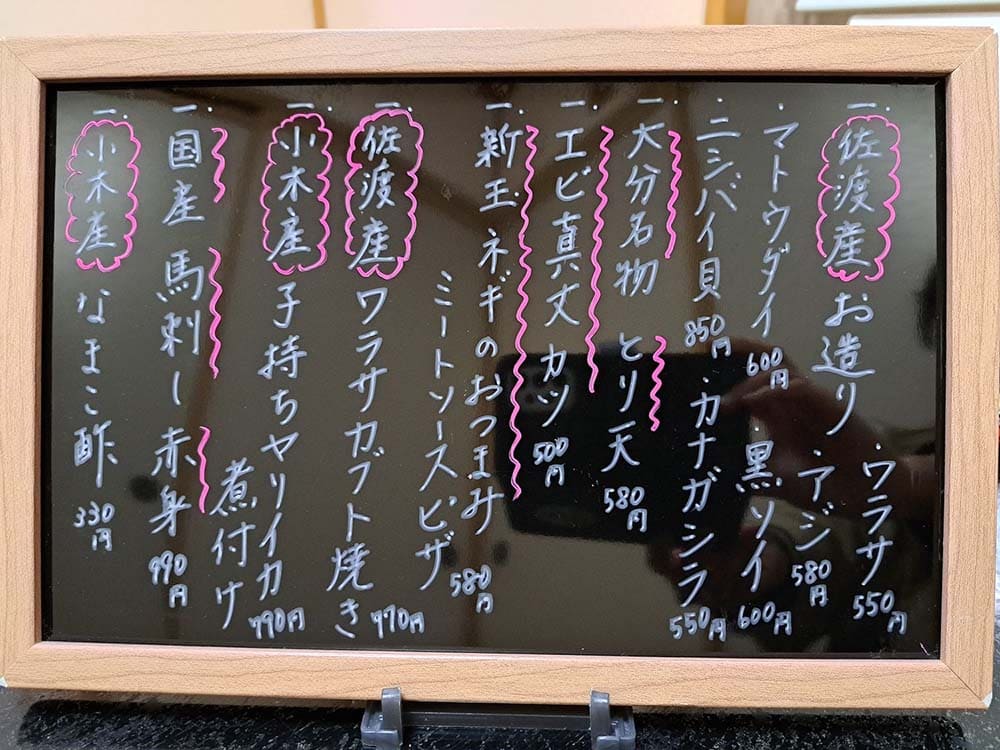 一. 佐渡産 お造り ・ワラサ 550円
・アジ 580円
・マトウダイ 600円 ・黒ソイ 600円
・ニシバイ貝 850円 ・カナガシラ 550円
一. 大分名物 とり天 580円
一. エビ真丈カツ 500円
一. 新玉ネギのおつまみ
ミートソースピザ 580円
一. 佐渡産 ワラサカブト焼き 770円
一. 小木産 子持ちヤリイカ
煮付け 790円
一. 国産 馬刺し 赤身 990円
一. 小木産 なまこ酢 330円